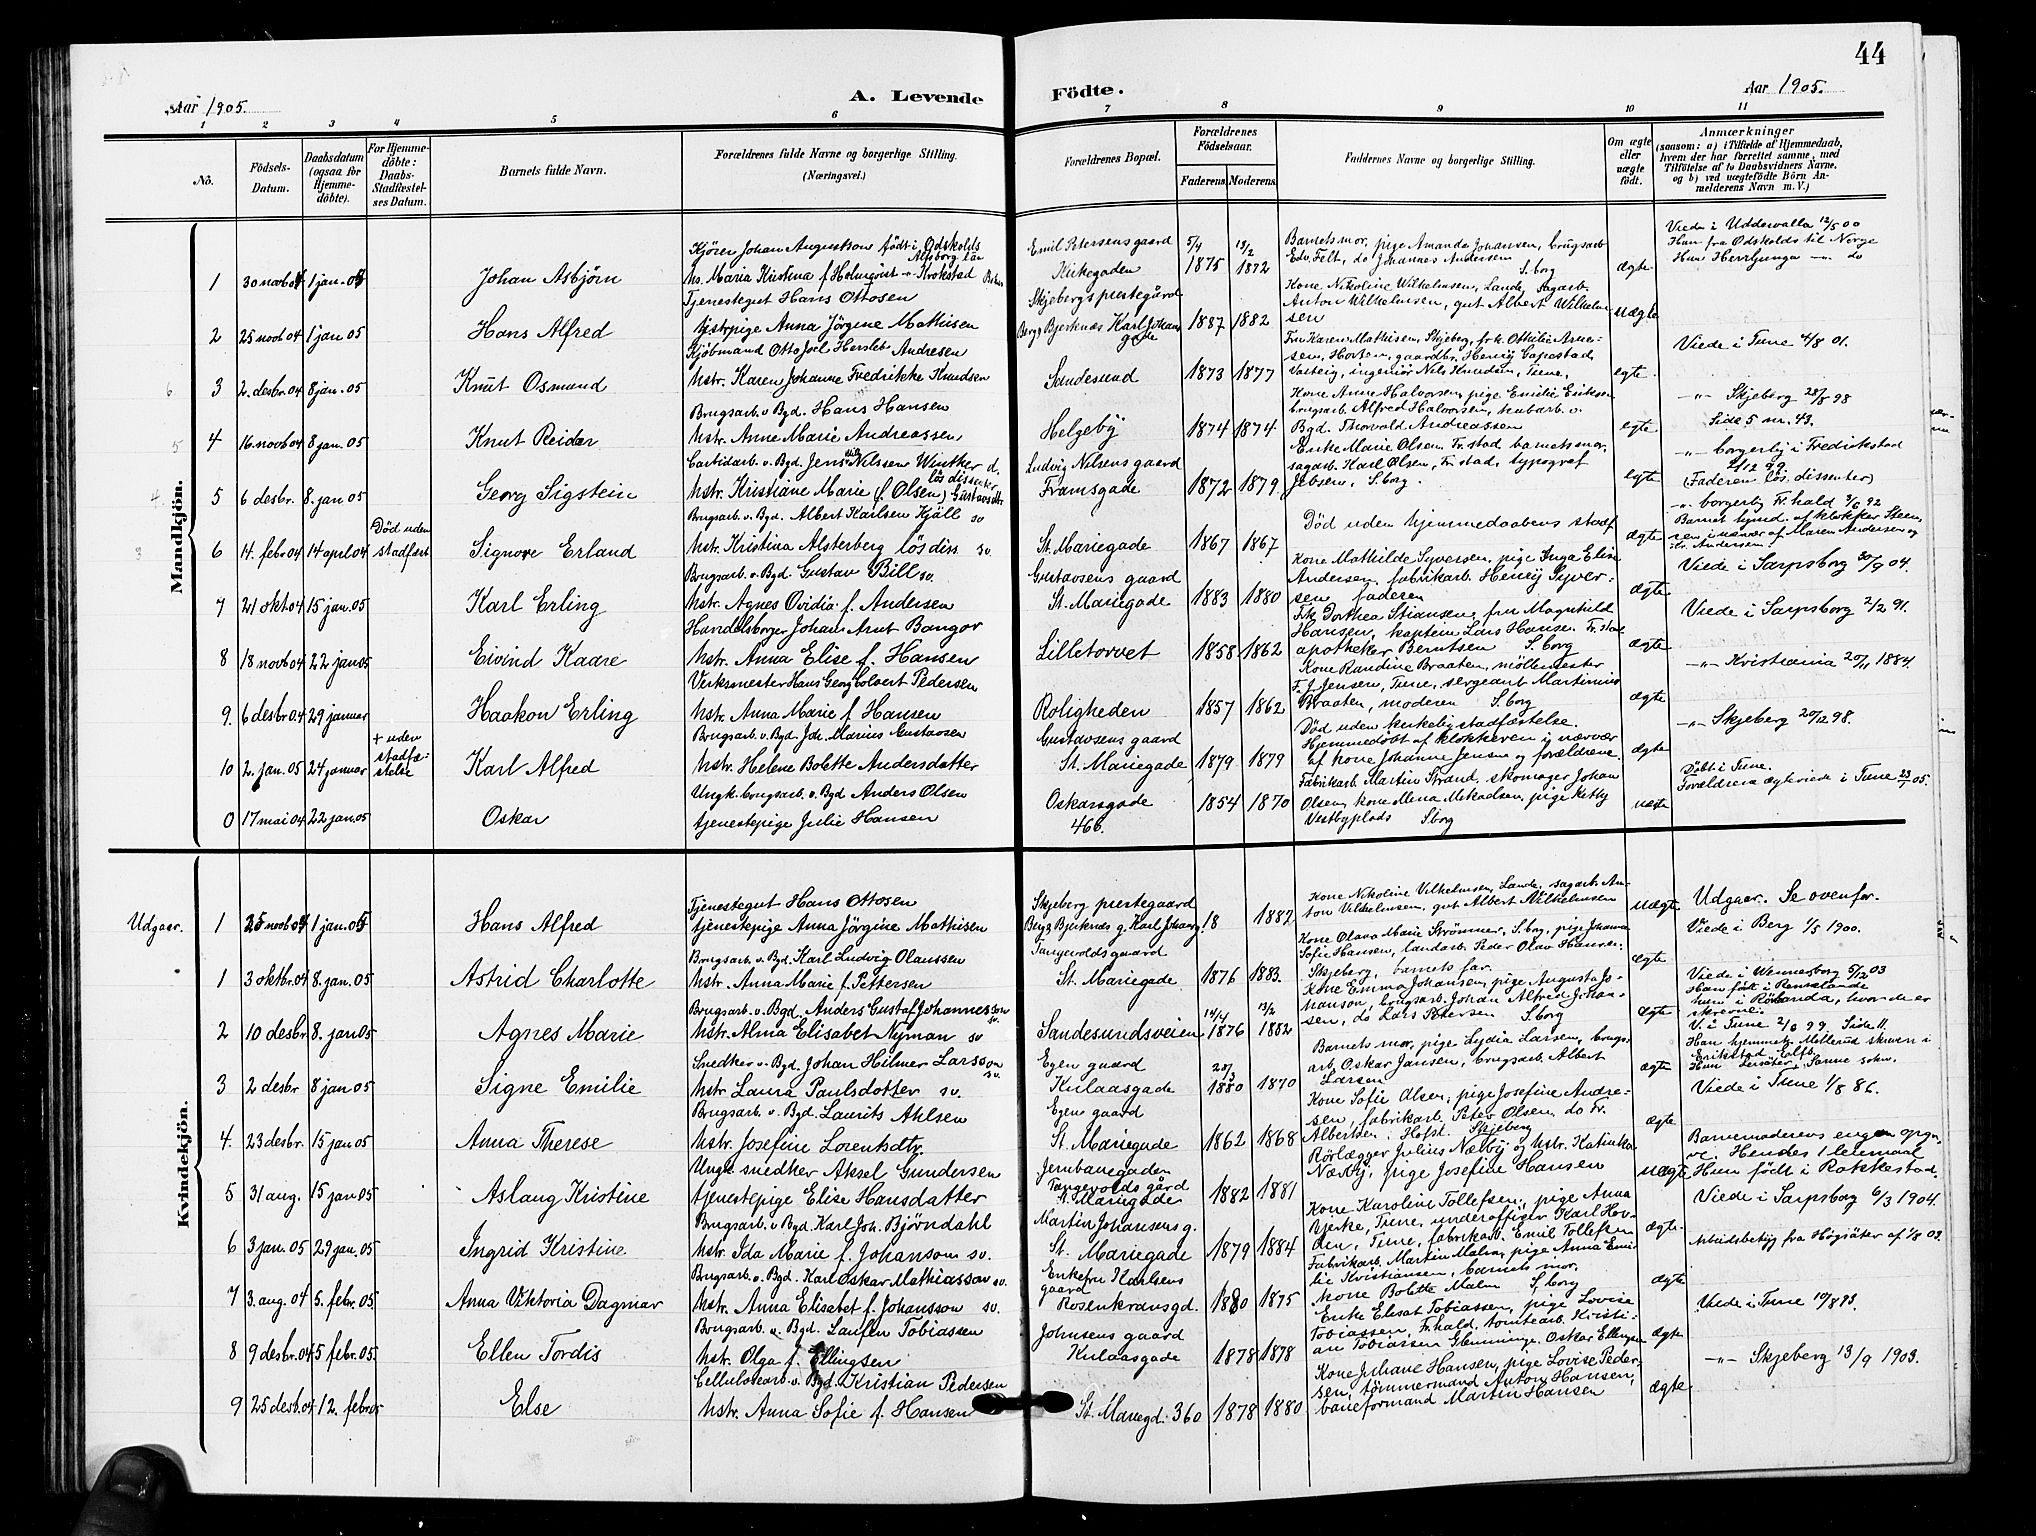 44
Aar 1905.
A. Levende Födte.
Aar 1905.
1 2 3 4 5 6 7 8 9 10 11
No.
Födsels-Datum.
Daabsdatum (ogsaa for Hjemme-döbte).
For Hjemme-döbte: Daabs-Stadfæstel-ses Datum.
Barnets fulde Navn.
Forældrenes fulde Navne og borgerlige Stilling. (Næringsvei.)
Forældrenes Bopæl.
Forældrenes Födselsaar.
Faderens. Moderens.
Faddernes Navne og borgerlige Stilling.
Om ægte eller uægte födt.
Anmærkninger (saasom: a) i Tilfælde af Hjemmedaab, hvem der har forrettet samme, med Tilföielse af to Daabsvidners Navne, og b) ved uægtefödte Börn An-melderens Navn m. V.)
Mandkjön.
1 30 novb 04 1 jan. 05 Johan Asbjørn
Kjörer Johan Augustson födt i Ödskolds
Hs. Maria Kristina f. Holmqvist
Emil Petersens gaard
Kirkegaden
5/4 1875 18/2 1872
Barnets mor, pige Amanda Johansen, brugsarb
Edv. Felt, do Johannes Andersen S.borg
ægte
Viede i Uddevalla 12/5 00
Han fra Ödskolds til Norge
Hun Herrljunga -"- do
2 25 novb 04 1 jan 05 Hans Alfred
Tjenestegut Hans Ottosen
tjstpige Anna Jörgine Mathisen
Skjebergs prestegård
Berg & Bjerknæs Karl Johans gade
1887 1882
Kone Nikoline Wilhelmsen, Lande, sagarb.
Anton Wilhelmsen, gut Albert Wilhelm-
sen
uægte
3 2. desbr. 04 8 jan. 05 Knut Osmund
Kjöbmand Otto Joel Hersleb Andresen
hstr. Karen Johanne Fredrikke Knudsen
Sandesund
1873 1877
Fru Karen Mathisen, Skjeberg, frk. Ottilie Arne-
sen, Horten, gaardbr. Henrij
Varteig, ingeniör Nils Knudsen, Tune,
egte.
Viede i Tune 4/8 01.
4 16. novb 04 8 jan. 05 Knut Reidar
Brugsarb. v. Bgd. Hans Hansen
hstr. Anne Marie Andreassen
Helgebÿ
1874 1874
Kone Anne Halvorsen, pige Emilie Eriksen
brugsarb. Alfred Halvorsen, v.
Bgd. Thorvald Andreassen
egte
-"- Skjeberg 28/8 98
Side 5 nr. 43.
5 6 desbr. 8. jan 05 Georg Sigstein
v. Bgd. Jens Nilssen Winther d.
lös dissenter
hstr. Kristiane Marie (f. Olsen) Gustavsdtr.
Ludvig Nilsens gaard
Framsgade
1872 1879
Enke Marie Olsen, Fr.stad barnets mor.
sagarb. Karl Olsen, Fr.stad, typograf
Jebsen, S.borg.
egte
-"- borgerlig i Fredrikstad
(Faderen lös. dissenter)
6 14. febr 04 14 april 04 Død uden stadfæst Signore Erland
Brugsarb. v. Bgd. Albert Karlsen Kjäll sv
hstr. Kristina Alsterberg lös diss. sv.
St. Mariegade
1867 1867
Død uden hjemmedaabens stadf
ægte
-"- borgerlig Fr.hald 3/6 92
Barnet hjmd. af klokker Steen-
sen i nærvær af Maren Andersen og
Andersen.
7 21 okt 04 15 jan. 05 Karl Erling
Brugsarb. v. Bgd. Gustav Bill sv.
hstr. Agnes Ovidia f. Andersen
Gustavsens gaard
St. Mariegade
1883 1880
Kone Mathilde Syversen, pige Inga Elise
Andersen, fabrikarb. Henrÿ Syver-
sen, faderen
ægte
Viede i Sarpsborg 30/9 04.
8 18 novb 04 22 jan 05 Eivind Kaare
Handelsborger Johan Arnt Bangor
hstr. Anna Elise f. Hansen
Lilletorvet
1858 1862
Frk Dorthea Stiansen, fru Magnhild
Hansen, kaptein Lars Hansen Fr.stad
apotheker Berntsen S.borg
ægte
Viede i Sarpsborg 2/2 91.
9. 6 desbr 04 29 januar Haakon Erling
Verksmester Hans Georg Colvert Pedersen
hstr. Anna Marie f. Hansen
Roligheden
1857 1862
Kone Randine Braaten, möllemester
F. J. Jensen, Tune, sergeant Martinius
Braaten, moderen S.borg
ægte
-"- Kristiania 20/11 1884.
10 2. jan. 05 24 januar + uden stadfæ-stelse Karl Alfred
Brugsarb. v. Bgd. Joh. Marius Gustavsen
hstr. Helene Bolette Andersdatter
Gustavsens gaard
St. Mariegade
1879 1879
Död uden kirkelig stadfæstelse.
Hjemmedöbt af klokkeren i nærvær
af kone Johanne Jensen og forældrene
ægte
-"- Skjeberg 20/12 98.
0 17 mai 04 22 jan. 05 Oskar
Ungk. brugsarb. v. Bgd Anders Olsen
tjenestepige Julie Hansen
Oskarsgade
466.
1854 1870
Fabrikarb. Martin Strand, skomager Johan
Olsen, kone Mena Mikalsen, pige Ketty
Vestbyplads S.borg
uægte
Döbt i Tune.
Forældrene ægteviede i Tune 05.
Kvindekjön.
Udgaar. 1 25 novb 04 1 jan. 05 Hans Alfred
Tjenestegut Hans Ottosen
tjenestepige Anna Jörgine Mathisen
Skjeberg prestegaard
Berg & Bjerknæs g. Karl Johansg.
18 1882
Kone Nikoline Vilhelmsen, Lande, sagarb. An-
ton Vilhelmsen, gut Albert Vilhelmsen
uægte
Udgaar. Se ovenfor.
1 3 oktbr. 04 8. jan. 05 Astrid Charlotte
Brugsarb. v. Bgd. Karl Ludvig Olaussen
hstr. Anna Marie f. Pettersen
Tangevoldsgaard
St. Mariegade
1876 1883.
Kone Olava Marie Strömner, S.borg, pige Johanna
Sofie Hansen, landarb. Peder Olav Hansen
Skjeberg, barnets far.
ægte
Viede i Berg 1/5 1900.
2 10 desbr. 8. jan 05 Agnes Marie
Brugsarb v. Bgd. Anders Gustaf Johannesson sv.
hstr. Alma Elisabet Nyman sv
Sandesundsveien
14/4 1876 13/2 1882
Kone Emma Johansen, pige Augusta Jo-
hanson, brugsarb. Johan Alfred Johan-
sen, do Lars Petersen S.borg
ægte
Viede i Wennesborg 5/12 03
Han födt i Rensländ
hun i Rölanda, hvor de er
skrevne.
3 2 desbr 8 jan 05 Signe Emilie
Snedker v. Bgd. Johan Hilmer Larsson sv.
hstr Laura Paulsdotter sv.
Egen gaard
Kulaasgade
20/3 1880 1870
Barnets mor, pige Lydia Larsen, brugs-
arb. Oskar Jansen, brugsarb. Albert
Larsen
ægte
V. i Tune 2/6 99. Side 11.
Han hjemmeh. Mellerud skreven i
Erikstad
Hun
4. 23 desbr. 15 jan 05 Anna Therese
Brugsarb. v. Bgd. Laurits Ahlsen
hstr. Josefine Lorentsdtr.
Egen gaard
St. Mariegade
1862 1868
Kone Sofie Olsen, pige Josefine Andre-
sen, fabrikarb. Peter Olsen, do Fr.
Albertsen, Hofst. Skjeberg
ægte
Viede i Tune 1/8 86.
5 31 aug. 15 jan 05 Aslaug Kristine
Ungk. snedker Aksel Gundersen
tjenestepige Elise Hansdatter
Jernbanegaden
Tangevolds gård
St. Mariegade
1882 1881
Rörlægger Julius Næsbÿ og hstr. Katinka
Næsbÿ, pige Josefine Hansen
uægte
Barnemoderens engen opga-
ve. Hendes 1 leiermaal
Hun födt i Rakkestad.
6 3 jan. 05 29 jan. 05 Ingrid Kristine
Brugsarb. v. Bgd. Karl Joh. Björndahl
hstr. Ida Marie f. Johansom sv.
Martin Johansens g.
St. Mariegade
1879 1884
Kone Karoline Tollefsen, pige Anna
Bjerke, Tune, underofficer Karl Hov-
den, Tune, fabrikarb. Emil Tollefsen
ægte.
Viede i Sarpsborg 6/3 1904.
7 3. aug. 04 5. febr. 05. Anna Viktoria Dagmar
Brugsarb. v. Bgd. Karl Oskar Mathiasson sv.
hstr. Anna Elisabet f. Johansson sv.
Enkefru Karlsens
gaard
Rosenkransgd.
1880 1875
Fabrikarb. Martin Malm, pige Anna Emi-
lie Kristiansen, barnets mor.
kone Bolette Malm S.borg
ægte
Arbeidsbetyg fra Högsäter af 1/8 03.
8 9 desbr. 04 5 febr. 05. Ellen Tordis
Brugsarb. v. Bgd. Laufen Tobiassen
hstr. Olga f. Ellingsen
Johnsens gaard
Kulaasgade
1878 1878
Enke Elisat Tobiassen, pige Lovise
Tobiassen, Fr.hald, tomtearb. Kristi-
an Tobiassen Glemminge, Oskar Ellingsen
ægte
Viede i Tune 10/8 93.
9 25 desb. 04 12. febr 05 Else
Cellulosearb. v. Bgd. Kristian Pedersen
hstr. Anna Sofie f. Hansen
St. Mariegd. 360
1878 1880
Kone Juliane Hansen, pige Lovise Peder-
sen, tömmermand Anton Hansen,
baneformand Martin Hansen
ægte
-"- Skjeberg 13/9 1903.